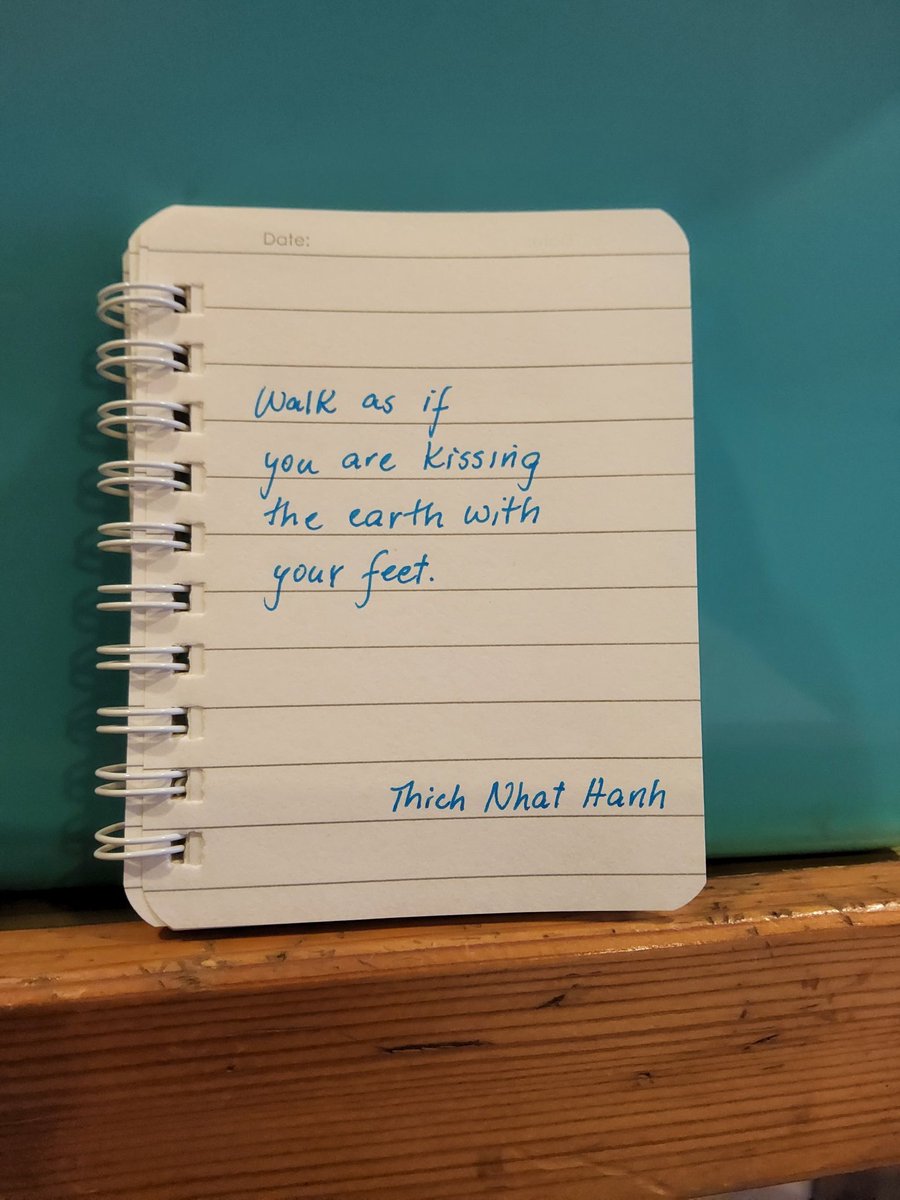 Date:
Walk as if
you are kissing
the earth with
your feet.
Thich Nhat Hanh